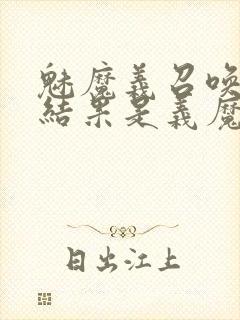 魅魔義召喚
結果是義魔
日出江上